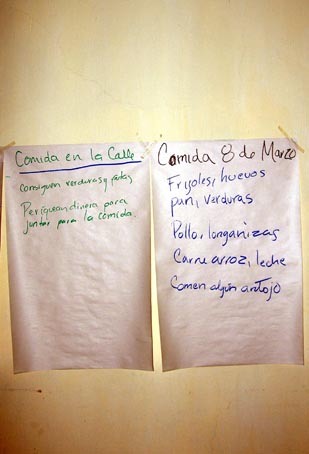 Comida en la Calle
- consiguen verduras y frutas
Periquean dinero para
juntar para la comida.
Comida 8 de Marzo
Frijoles, huevos
pan, verduras
Pollo, longanizas
Carne arroz, leche
Comen algún antojo